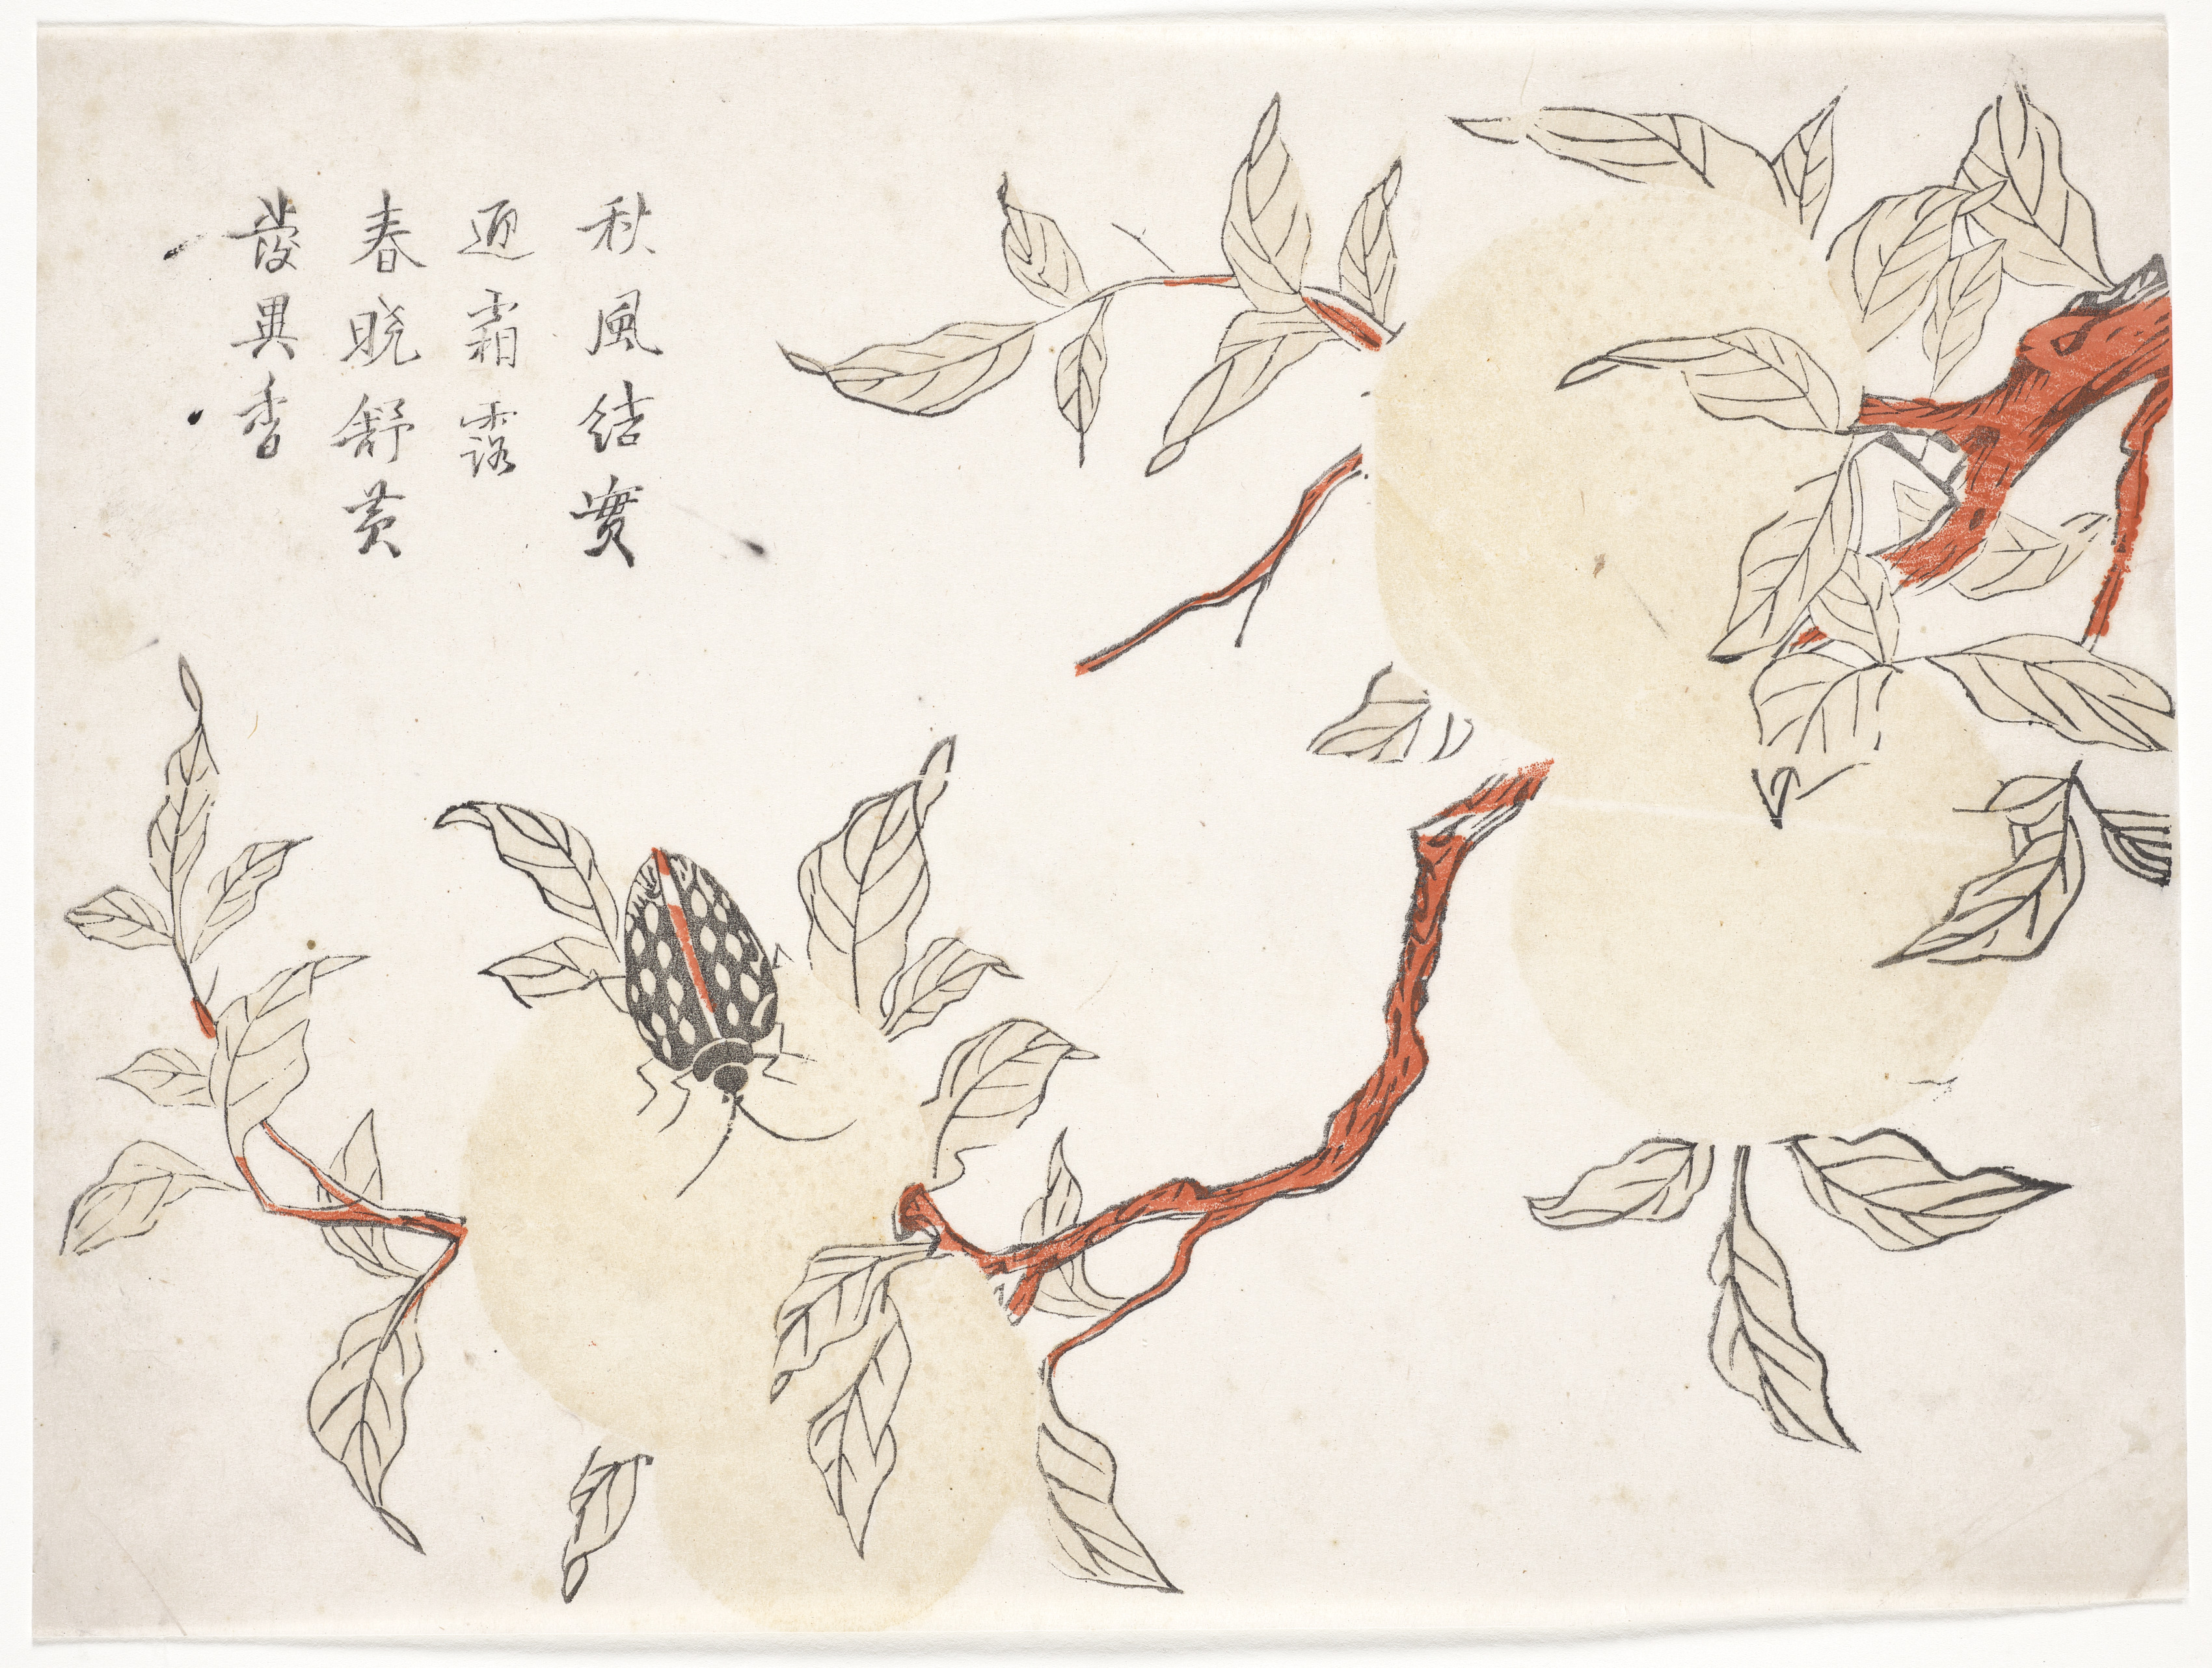 秋風結實
迎霜露
春晓舒黄
發異香